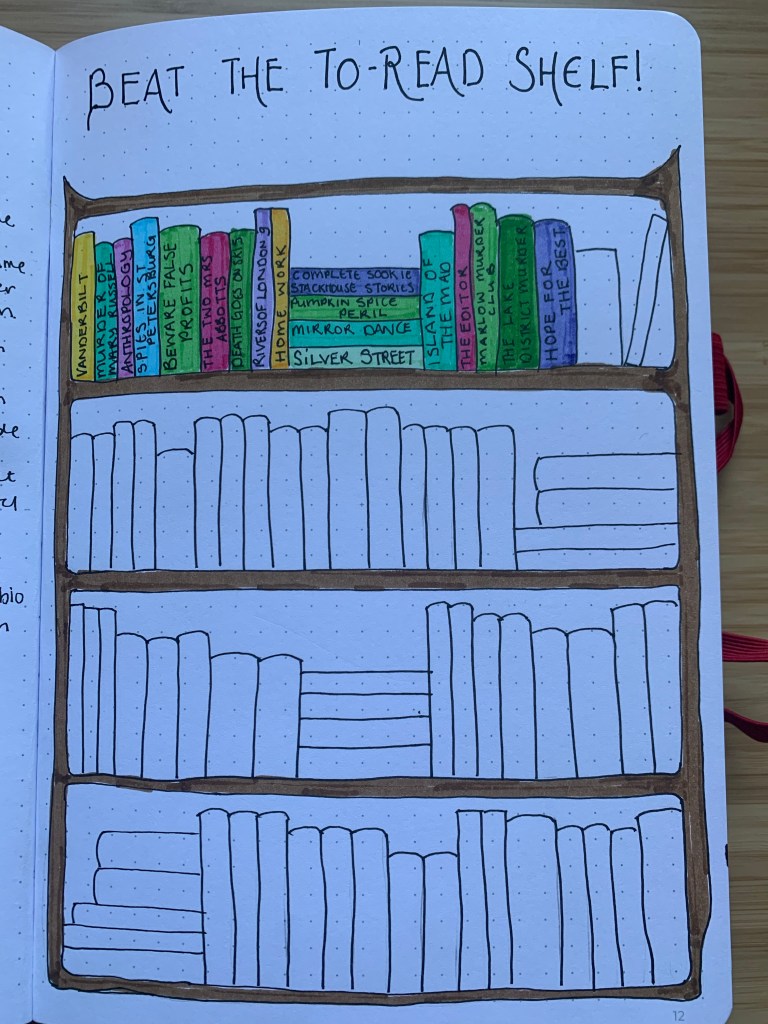 BEAT THE TO-READ SHELF!
VANDERBILT
MURDER OF
MARY RUSSELL
ANTHROPOLOGY
SPIES IN ST
PETERSBURG
BEWARE FALSE
PROFITS
THE TWO MRS
ABBOTTS
DEATH GOES ON SKIS
RIVERS OF LONDON 9
HOME WORK
COMPLETE SOOKIE
STACKHOUSE STORIES
PUMPKIN SPICE
PERIL
MIRROR DANCE
SILVER STREET
ISLAND OF
THE MAD
THE EDITOR
MARLOW MURDER
CLUB
THE LAKE
DISTRICT MURDER
HOPE FOR
THE BEST
12